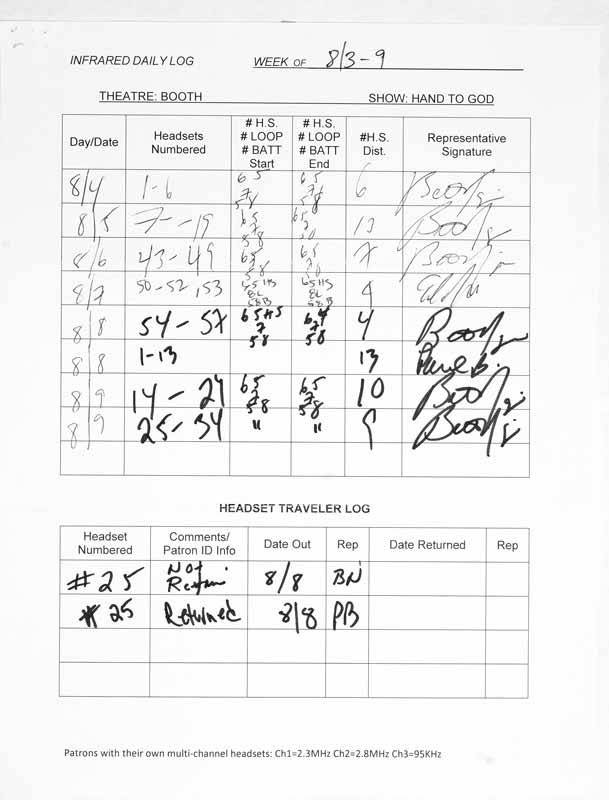 INFRARED DAILY LOG WEEK OF 8/3-9
THEATRE: BOOTH SHOW: HAND TO GOD
Day/Date Headsets Numbered # H.S. # LOOP # BATT Start # H.S. # LOOP # BATT End #H.S. Dist. Representative Signature
8/4 1-6 65 7 58 65 7 58 6
8/5 7--19 65 7 58 65 7 13
8/6 43-49 65 7 58 65 7 58 7
8/7 50-52, 53 65 HS 8L 58B 65HS 8L 58B 4
8/8 54-57 65HS 7 58 64 7 58 4
8/8 1-13 13 B.
8/9 14-24 65 7 58 65 7 58 10
8/9 25-34 " " 9
HEADSET TRAVELER LOG
Headset Numbered Comments/ Patron ID Info Date Out Rep Date Returned Rep
#25 Not 8/8 BN
#25 Returned 8/8 PB
Patrons with their own multi-channel headsets: Ch1=2.3MHz Ch2=2.8MHz Ch3=95KHz